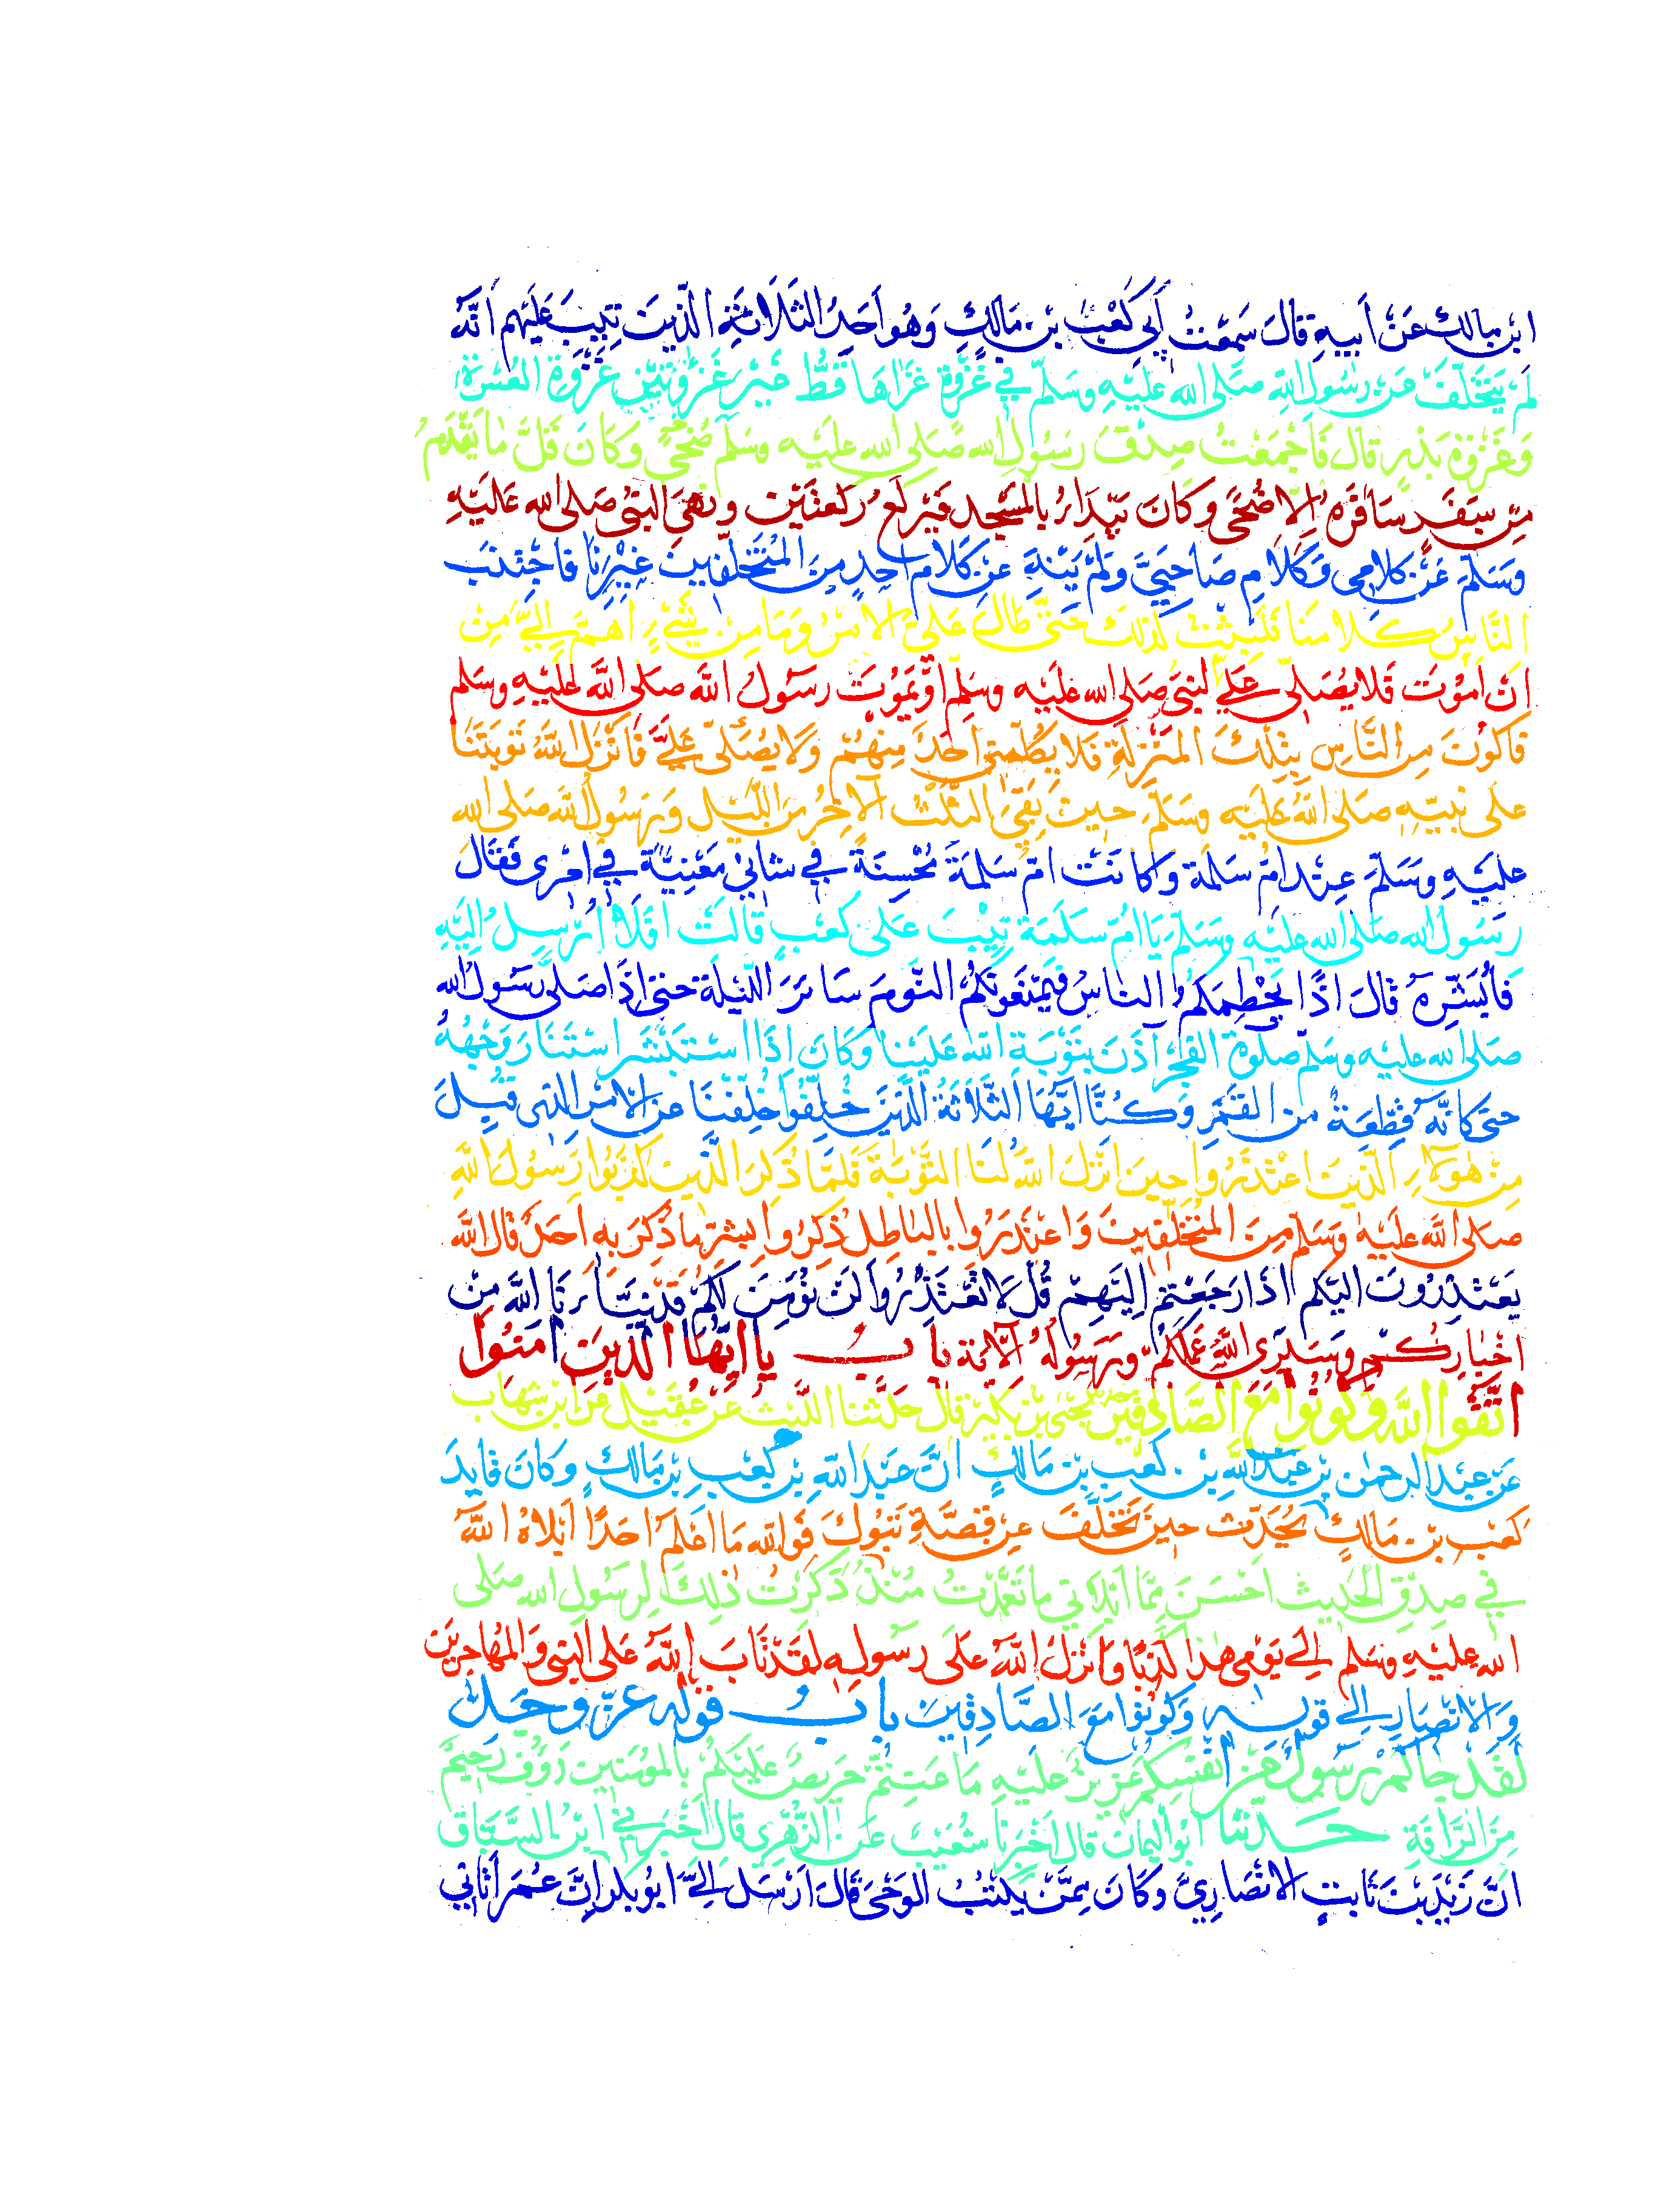 ابن مالك عَنْ اَبيهِ قالَ سَمِعْتُ اَبِى كَعْبَ بْنَ مَالِكٍ وَهُوَ اَحَدُ الثَلَاثَةِ الَّذِينَ تِيبَ عَلَيْهِم اَنَّهُ
لَمْ يَتَخَلَّفْ عَنْ رسُولِ اللهِ صَلى الله عَلَيْهِ وسَلّم فِي غَزْوَةٍ غَزَاهَا قَطُّ غَيْرَ غَزْوَتَيْنِ غَزْوَةِ العُسْرَةِ
وَغَزْوَةِ بَدْرٍ قالَ فَاَجْمَعْتُ صِدْقَ رَسُولِ الله صَلى الله عليْه وسَلّم ضُحًى وَكَانَ قَلَّ مَا يَقْدَمُ
مِنْ سَفَرٍ سَافَرَهُ اِلا ضُحًى وَكانَ يَبْدَاُ بالمَسْجِد فَيَرْكَعُ رَكعتَيْن ونَهَى النَّبِىُّ صَلى الله عَلَيْهِ
وَسَلَّمَ عَنْ كلامِى وَكَلَامِ صَاحِبَيَّ وَلَمْ يَنْهَ عَنْ كَلَامِ اَحدٍ مِنَ المُتَخَلِّفِينَ غَيْرِنَا فَاجْتَنَبَ
النَّاسُ كَلَامَنَا فَلَبِثْتُ كَذلكَ حَتّى طَالَ عَلَىَّ الامْرُ وَمَا مِنْ شَيْءٍ اَهَمّ اِلَىَّ مِن
اَنْ اَمُوْتَ فَلَا يُصَلى عَلَىّ النبىُّ صَلى الله عَلَيْه وسَلم اَوْ يَمُوْتَ رسَولُ اللَّه صَلى اللَّه عَلَيْهِ وسَلم
فَاكُوْنَ مِنَ النَّاسِ بِتْلكَ المَنْزِلَةِ فَلا يُكَلّمنى اَحَدٌ مِنهُمْ وَلَا يُصَلّى عَلَىَّ فَاَنْزَلَ اللَّهُ تَوْبَتَنَا
عَلَى نبيّهِ صَلى اللَّهُ عَلَيْهِ وَسَلَّمَ حينَ بَقِىَ الثلُثُ الآخِرُ مِنَ اللَّيْلِ وَرَسُولُ اللَّه صَلى الله
عليْهِ وَسَلَّمَ عِنْدَ امِّ سَلَمَة وَكانَتْ امّ سَلَمَةَ مُحْسِنَةً في شانى مَعْنِيَّةً فِي امْرِى فَقالَ
رَسُولُ الله صَلى الله عليْه وَسَلَّمَ يَا امّ سَلَمَة تِيْبَ عَلى كَعْبٍ قَالَتْ اَفَلَا اُرْسِلُ اِلَيْهِ
فَاُبَشّرهُ قَالَ اذًا يَحْطِمَكُمُ النَاسُ فَيَمْنَعُونَكُمُ النّومَ سَائرَ اللّيْلَةِ حَتى اِذَا صَلى رَسُولُ الله
صَلى الله عليْه وسَلّم صَلوةَ الفَجْرِ آذَنَ بِتَوْبَةِ اللهِ عَلَيْنا وَكَانَ اِذَا اسْتَبْشَرَ اسْتَنَارَ وَجْهُهُ
حتى كَانَّهُ قِطْعَةٌ مِن القَمَرِ وَكُنَّا اَيّهَا الثَّلَاثَةُ الَّذِيْنَ خُلِّفُوا خُلِّفْنَا عنِ الامْرِ الذِى قُبِلَ
مِنْ هَؤلَاءِ الَّذِيْنَ اعْتَذَرُوا حِينَ اَنْزَلَ اللَّهُ لنَا التَّوْبَةَ فَلَمَّا ذُكِرَ الَّذِينَ كَذَبُوا رَسُولَ اللَّهِ
صَلى اللَّه عَلَيْه وَسَلّم مِنَ المُتَخَلّفِينَ وَاعْتَذَرُوا بِالبَاطِلِ ذُكِرُوا بِشَرِّ مَا ذُكِرَ بِه اَحَدٌ قَالَ اللَّه
يَعْتَذِرُوْنَ اليْكُم اذَا رَجَعْتم اِلَيْهِمْ قُلْ لَا تَعْتَذِرُوا لَنْ نُؤْمِنَ لَكُمْ قَدْ نَبَّأنَا اللَّهُ مِنْ
اخْبَارِكُمْ وَسَيَرَى اللَّهُ عَمَلَكُمْ وَرَسُولُهُ الآية بابُ يا اَيّهَا الّذِيْنَ اَمَنُوا
اتَّقُوا اللَّهَ وَكُونُوا مَعَ الصَّادِقِينَ يَحْيَى بْنُ بُكَيْرٍ قَالَ حَدَّثَنَا اللَّيْثُ عَنْ عُقَيْلٍ عَن ابْنِ شِهَابٍ
عَنْ عَبْدِ الرحمٰنِ بْنِ عَبْدِ اللَّهِ بْنِ كَعْبِ بْنِ مَالِكٍ اَنَّ عَبْدَ اللَّهِ بْنَ كَعْبِ بْنِ مَالِكٍ وَكانَ قايدَ
كَعْب بْنِ مَالِكٍ يُحَدّث حينَ تَخَلَّفَ عَنْ قِصَّةِ تَبُوكَ فَوَالله مَا اَعْلَمُ اَحَدًا اَبْلَاهُ اللَّهُ
في صِدْقِ الحَدِيثِ اَحْسَنَ مِمَّا اَبْلَانِي مَا تَعَمَّدْتُ مُنْذُ ذَكَرْتُ ذلِكَ لِرَسُولِ الله صَلى
الله عليْهِ وَسَلم اِلَى يَوْمِى هٰذَا كَذِبًا وَاَنْزَلَ اللَّهُ عَلَى رسَولِهِ لَقَدْ تَابَ اللَّهُ عَلى النبى وَالمُهَاجِرِيْنَ
وَالانْصَارِ اِلَى قوله وَكُوْنُوا مَعَ الصَّادِقِيْنَ بابُ قوْلِه عَزّ وجَلّ
لَقَدْ جَاءكُمْ رَسُولٌ مِنْ اَنْفُسِكُمْ عَزِيزٌ عَلَيْهِ مَا عَنِتُّمْ حَرِيصٌ عَلَيْكُمْ بالمؤمنِين رَؤفٌ رَحِيمٌ
مِنَ الرَّافَةِ حَدَّثَنَا ابُو اليَمَانِ قالَ اَخْبَرَنَا شُعَيْبٌ عَنِ الزُّهْرِى قَالَ اَخْبَرَنِي ابْنُ السَّبَّاقِ
انَّ زَيْدَ بْنَ ثَابتٍ الانْصَارِيَّ وَكَانَ مِمَّنْ يَكْتُبُ الوَحْىَ قَالَ اَرْسَلَ اِلَىَّ ابُو بَكْرٍ اِنَّ عُمَرَ اَتَانِي